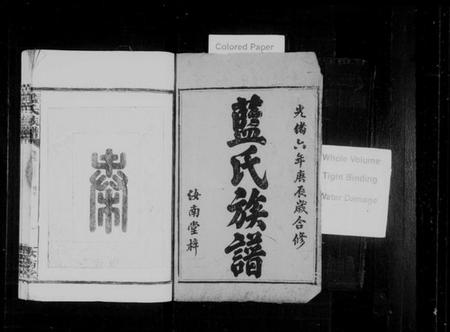 Colored Paper
光緒六年庚辰歲合修
藍氏族譜
汝南堂梓
Whole Volume
Tight Binding
Water Damage